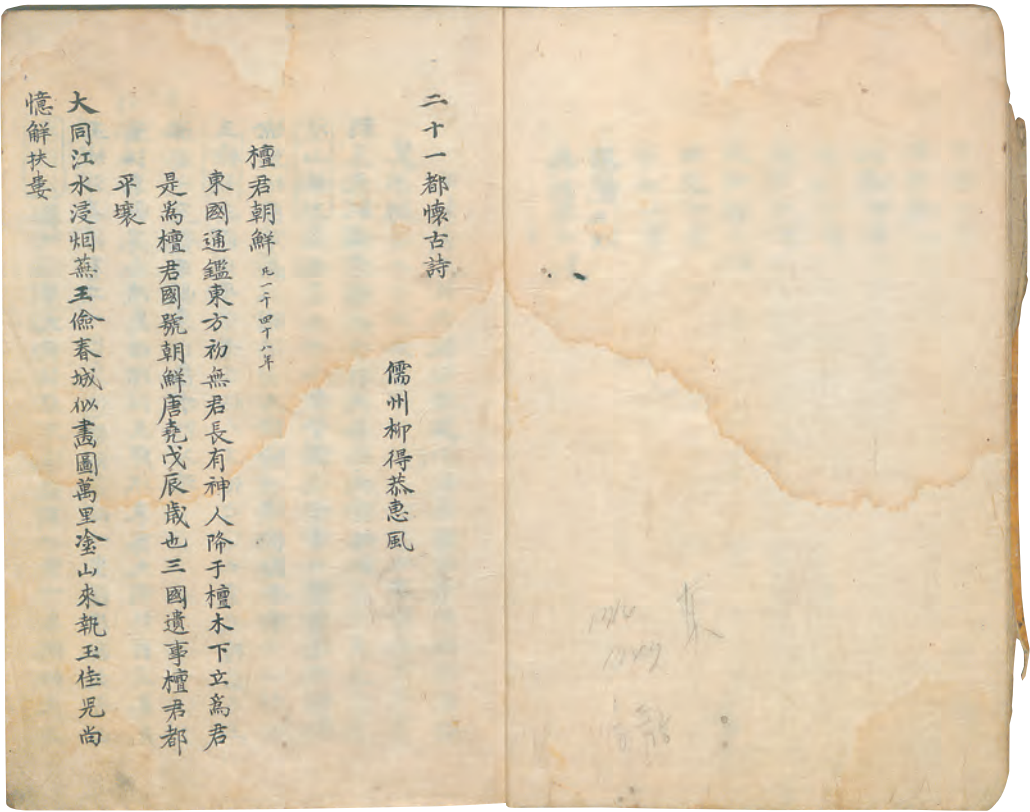 二十一都懷古詩
儒州柳得恭惠風
檀君朝鮮 凡一千四十八年
東國通鑑東方初無君長有神人降于檀木下立爲君
是爲檀君國號朝鮮唐堯戊辰歲也三國遺事檀君都
平壤
大同江水浸烟蕪王儉春城似畵圖萬里塗山來執玉佳兒尙
憶解扶婁